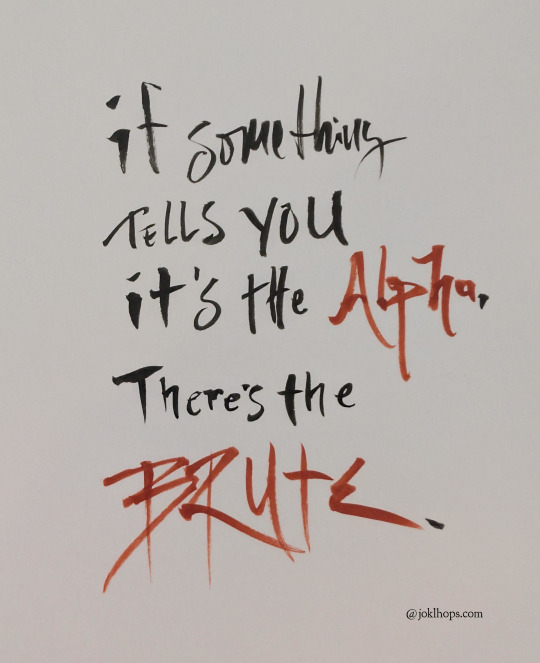 if something
TELLS YOU
it's the Alpha,
There's the
BRUTE.
@joklhops.com